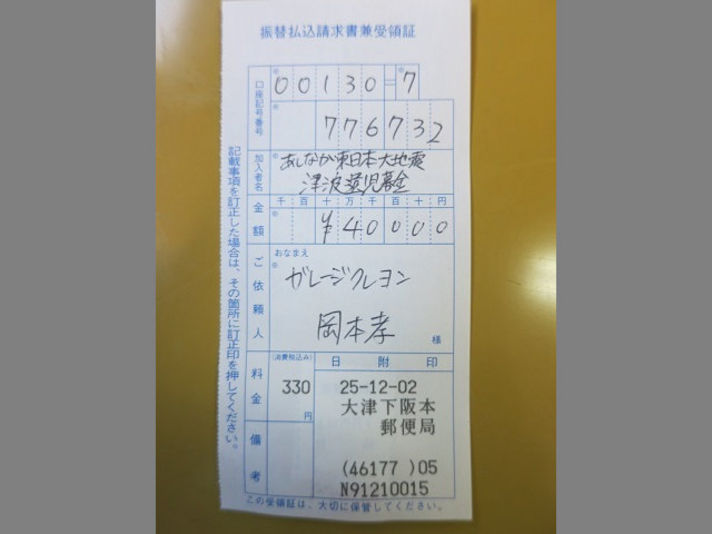 振替払込請求書兼受領証
口座記号番号
※
00130=7
※
776732
加入者名
※
あしなが東日本大地震
津波遺児募金
金額
千百十万千百十円
※
¥40000
ご依頼人
おなまえ
※
ガレージクレヨン
岡本孝
様
料金
(消費税込み)
330
円
日附印
25-12-02
大津下阪本
郵便局
(46177 )05
N91210015
備考
記載事項を訂正した場合は、その箇所に訂正印を押してください。
この受領証は、大切に保管してください。